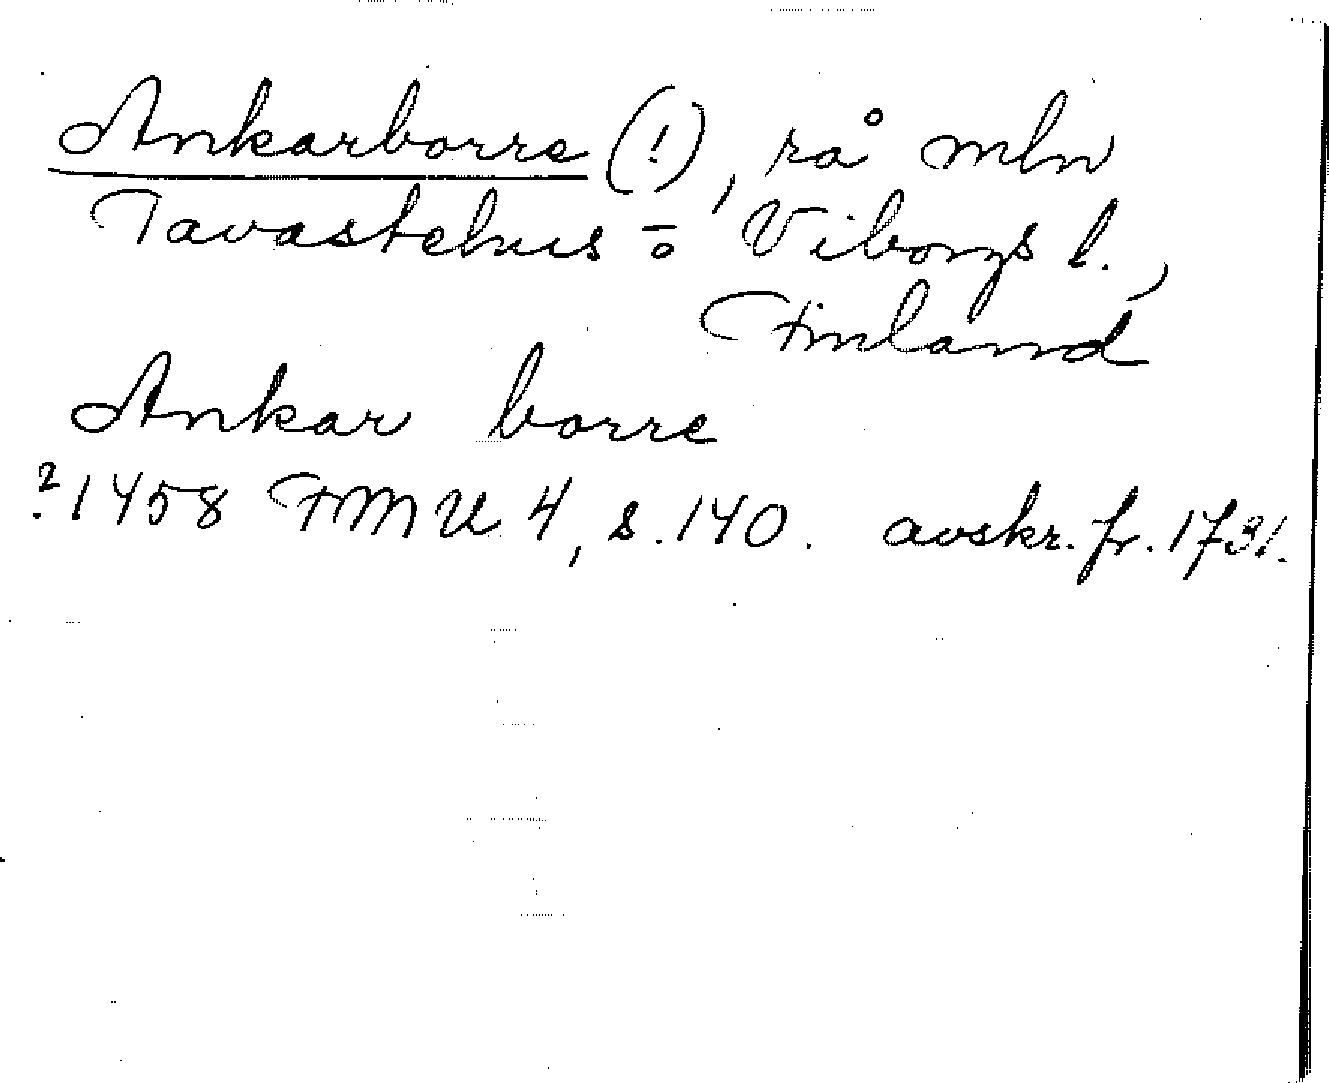 Ankarborre (!), rå mln
Tavastehus o Viborgs l.,
Finland
Ankar borre
?1458 FMU 4, s. 140. avskr. fr. 1731.